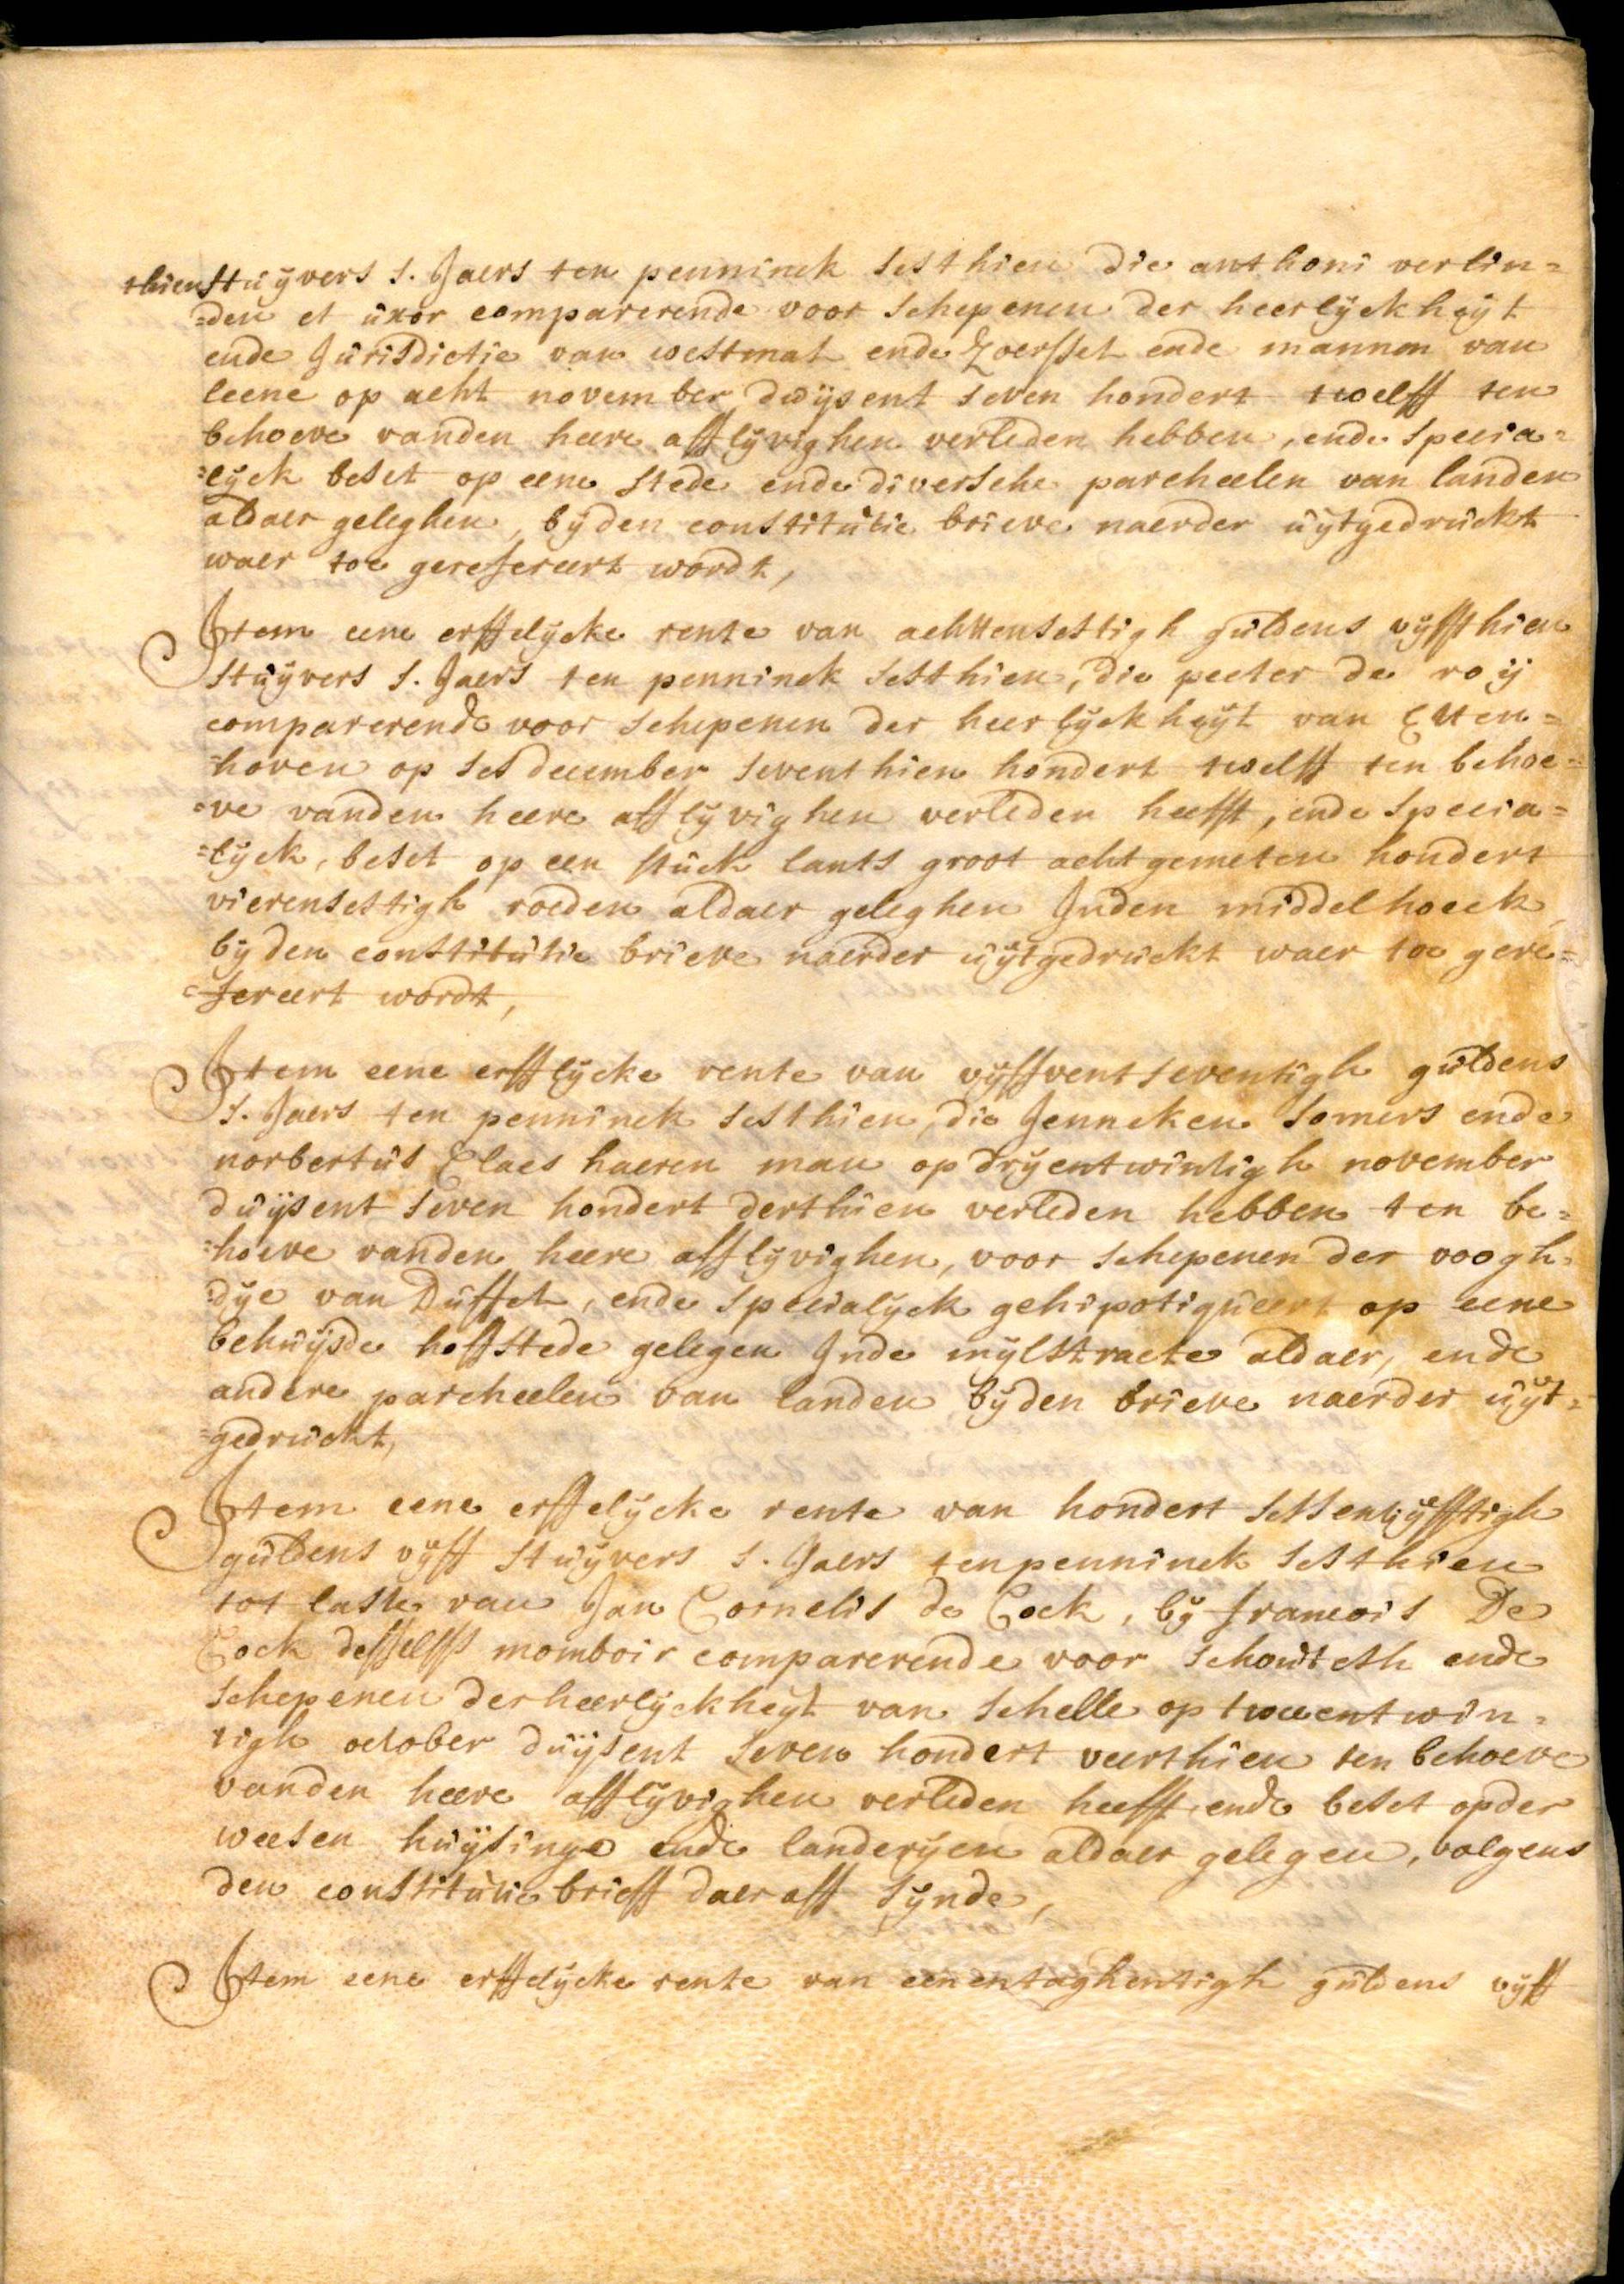 thien stuijvers s. Jaers ten penninck sesthien die anthoni verlin=
=den et uxor comparerende voor schepenen der heerlijckheijt
ende Jurisdictie van westmal ende Zoerssel ende mannen van
leene op acht november duijsent seven hondert twelff ten
behoeve vanden heere afflijvighen verleden hebben, ende specia=
=lijck beset op eene stede ende diversche parcheelen van landen
aldaer geleghen, bijden constitutie brieve naerder uijtgedruckt
waer toe gerefereert wordt,
Item eene erffelijcke rente van achttensestigh guldens vijffthien
stuijvers s. Jaers ten penninck sesthien, die peeter de roij
comparerende voor schepenen der heerlijckheijt van Etten=
=hoven op ses december seventhien hondert twelff ten behoe=
=ve vanden heere afflijvighen verleden heefft, ende specia=
=lijck, beset op een stuck lants groot acht gemeten hondert
vierensestigh roeden aldaer geleghen Inden middelhoeck,
bijden constitutie brieve naerder uijtgedruckt waer toe gere=
=fereert wordt,
Item eene erfflijcke rente van vijffventseventigh guldens
s. Jaers ten penninck sesthien, die Jenneken Somers ende
norbertus Claes haeren man op drijentwintigh november
duijsent seven hondert derthien verleden hebben ten be=
=hoeve vanden heere afflijvighen, voor schepenen der voogh=
dije van Duffel, ende specialijck gehipotiqueert op eene
behuijsde hoffstede gelegen Inde mijlstraete aldaer, ende
andere parcheelen van landen bijden brieve naerder uijt=
=gedruckt,
Item eene erffelijcke rente van hondert sessenvijfftigh
guldens vijff stuijvers s. Jaers ten penninck sesthien
tot laste van Jan Cornelis de Cock, bij francois De
Cock desselffs momboir comparerende voor schouteth ende
schepenen der heerlijckheijt van schelle op tweentwin=
tigh october duijsent seven hondert veerthien ten behoeve
vanden heere afflijvighen verleden heefft, ende beset op der
weesen huijsinge ende landerijen aldaer gelegen, volgens
den constitutie brieff daer aff sijnde,
Item eene erffelijcke rente van eenentaghentigh guldens vijff